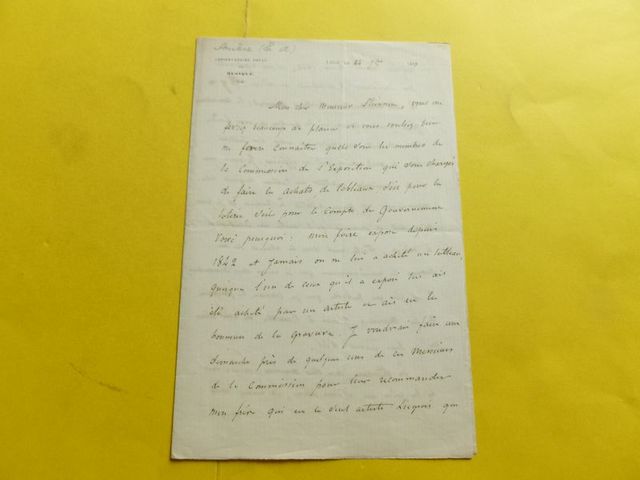 CONSERVATOIRE ROYAL
MUSIQUE
Mon cher Monsieur vous me
ferez beaucoup de plaisir si vous voulez bien
me faire connaitre quels sont les membres de
la Commission de l'Exposition qui sont chargés
de faire les achats de tableaux soit pour la
soit pour le Compte du Gouvernement
Voici pourquoi : mon frère expose depuis
1842 et jamais on ne lui a acheté un tableau,
quoique l'un de ceux qu'il a exposé
été acheté par un artiste et ais eu les
honneurs de la Gravure. Je voudrais faire une
demarche près de quelques uns de ces Messieurs
de la Commission pour leur recommander
mon frère qui est le seul artiste Liégeois qui